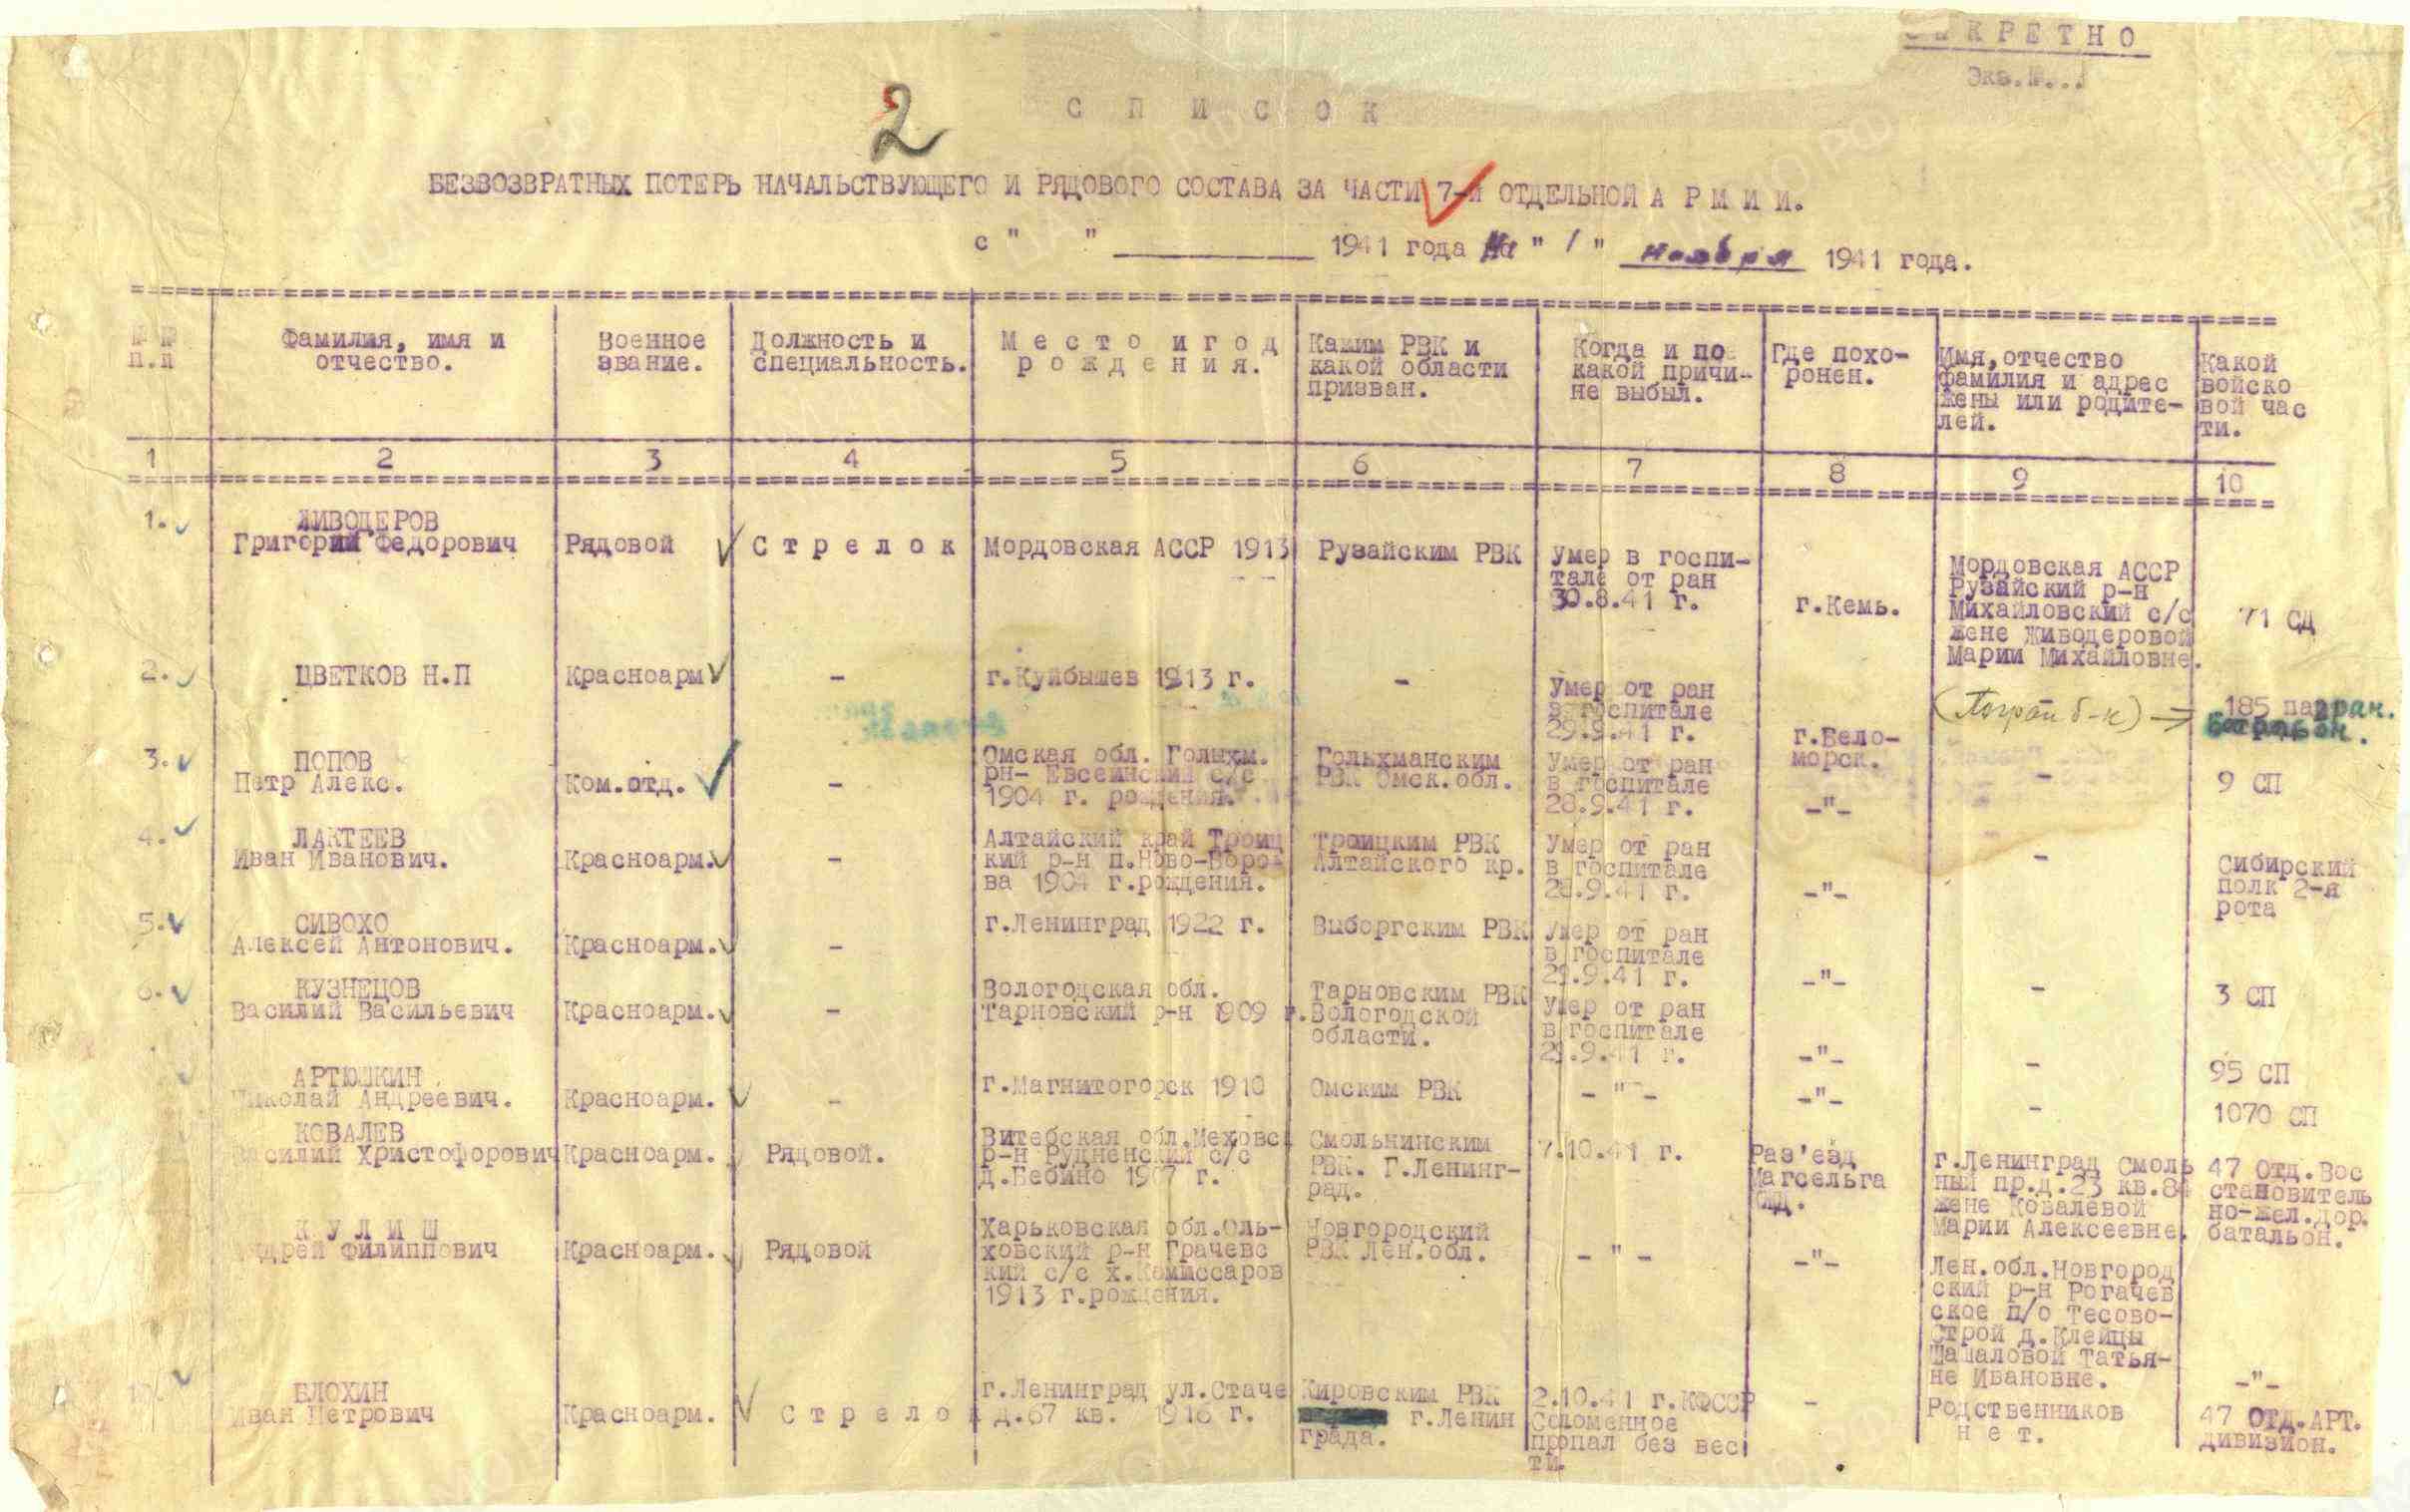 СЕКРЕТНО
Экз.№...
2
С П И С О К
БЕЗВОЗВРАТНЫХ ПОТЕРЬ НАЧАЛЬСТВУЮЩЕГО И РЯДОВОГО СОСТАВА ЗА ЧАСТИ 7-й ОТДЕЛЬНОЙ А Р М И И.
с " " 1941 года на " 1 " ноября 1941 года.
№ №
п.п
Фамилия, имя и
отчество.
Военное
звание.
Должность и
специальность.
М е с т о и г о д
р о ж д е н и я.
Каким РВК и
какой области
призван.
Когда и по
какой причи-
не выбыл.
Где похо-
ронен.
Имя, отчество
фамилия и адрес
жены или родите-
лей.
Какой
войско
вой час
ти.
1 2 3 4 5 6 7 8 9 10
1.
ЖИВОДЕРОВ
Григорий Федорович
Рядовой
С т р е л о к
Мордовская АССР 1913
Рузайским РВК
Умер в госпи-
тале от ран
30.8.41 г.
г.Кемь.
Мордовская АССР
Рузайский р-н
Михайловский с/с
жене Живодеровой
Марии Михайловне.
71 СД
2.
ЦВЕТКОВ Н.П
Красноарм
-
г.Куйбышев 1913 г.
-
Умер от ран
в госпитале
29.9.41 г.
г.Бело-
морск.
(Погран б-н)
185 погран.
батальон.
3.
ПОПОВ
Петр Алекс.
Ком.отд.
-
Омская обл. Голыхм.
рн- Евсеинский с/с
1904 г. рождения.
Гольхманским
РВК Омск.обл.
Умер от ран
в госпитале
28.9.41 г.
-"-
-
9 СП
4.
ЛАКТЕЕВ
Иван Иванович.
Красноарм.
-
Алтайский край Троиц
кий р-н п.Ново-Боро
ва 1904 г.рождения.
Троицким РВК
Алтайского кр.
Умер от ран
в госпитале
28.9.41 г.
-"-
-
Сибирский
полк 2-я
рота
5.
СИВОХО
Алексей Антонович.
Красноарм.
-
г.Ленинград 1922 г.
Выборгским РВК
Умер от ран
в госпитале
29.9.41 г.
-"-
-
3 СП
6.
КУЗНЕЦОВ
Василий Васильевич
Красноарм.
-
Вологодская обл.
Тарновский р-н 1909 г.
Тарновским РВК
Вологодской
области.
Умер от ран
в госпитале
29.9.41 г.
-"-
-
95 СП
АРТЮШКИН
Николай Андреевич.
Красноарм.
-
г.Магнитогорск 1910
Омским РВК
- " -
-"-
-
1070 СП
КОВАЛЕВ
Василий Христофорович
Красноарм.
Рядовой.
Витебская обл.Меховс
р-н Рудненский с/с
д.Бебино 1907 г.
Смольнинским
РВК. Г.Ленинг-
рад.
7.10.41 г.
Раз'езд
Масельга
жд.
г.Ленинград Смоль
ный пр.д.23 кв.84
жене Ковалевой
Марии Алексеевне.
47 Отд.Вос
становитель
но-жел.дор.
батальон.
К У Л И Ш
Андрей Филиппович
Красноарм.
Рядовой
Харьковская обл.Оль-
ховский р-н Грачевс
кий с/с х.Комиссаров
1913 г.рождения.
Новгородский
РВК Лен.обл.
- " -
-"-
Лен.обл.Новгород
ский р-н Рогачев
ское п/о Тесово-
Строй д.Клейцы
Шапаловой Татья-
не Ивановне.
-"-
10.
БЛОХИН
Иван Петрович
Красноарм.
С т р е л о к
г.Ленинград ул.Стаче
д.67 кв. 1916 г.
Кировским РВК
г.Ленин
града.
2.10.41 г.КФССР
Соломенное
пропал без вес
ти.
-
Родственников
н е т.
47 ОТД.АРТ.
дивизион.